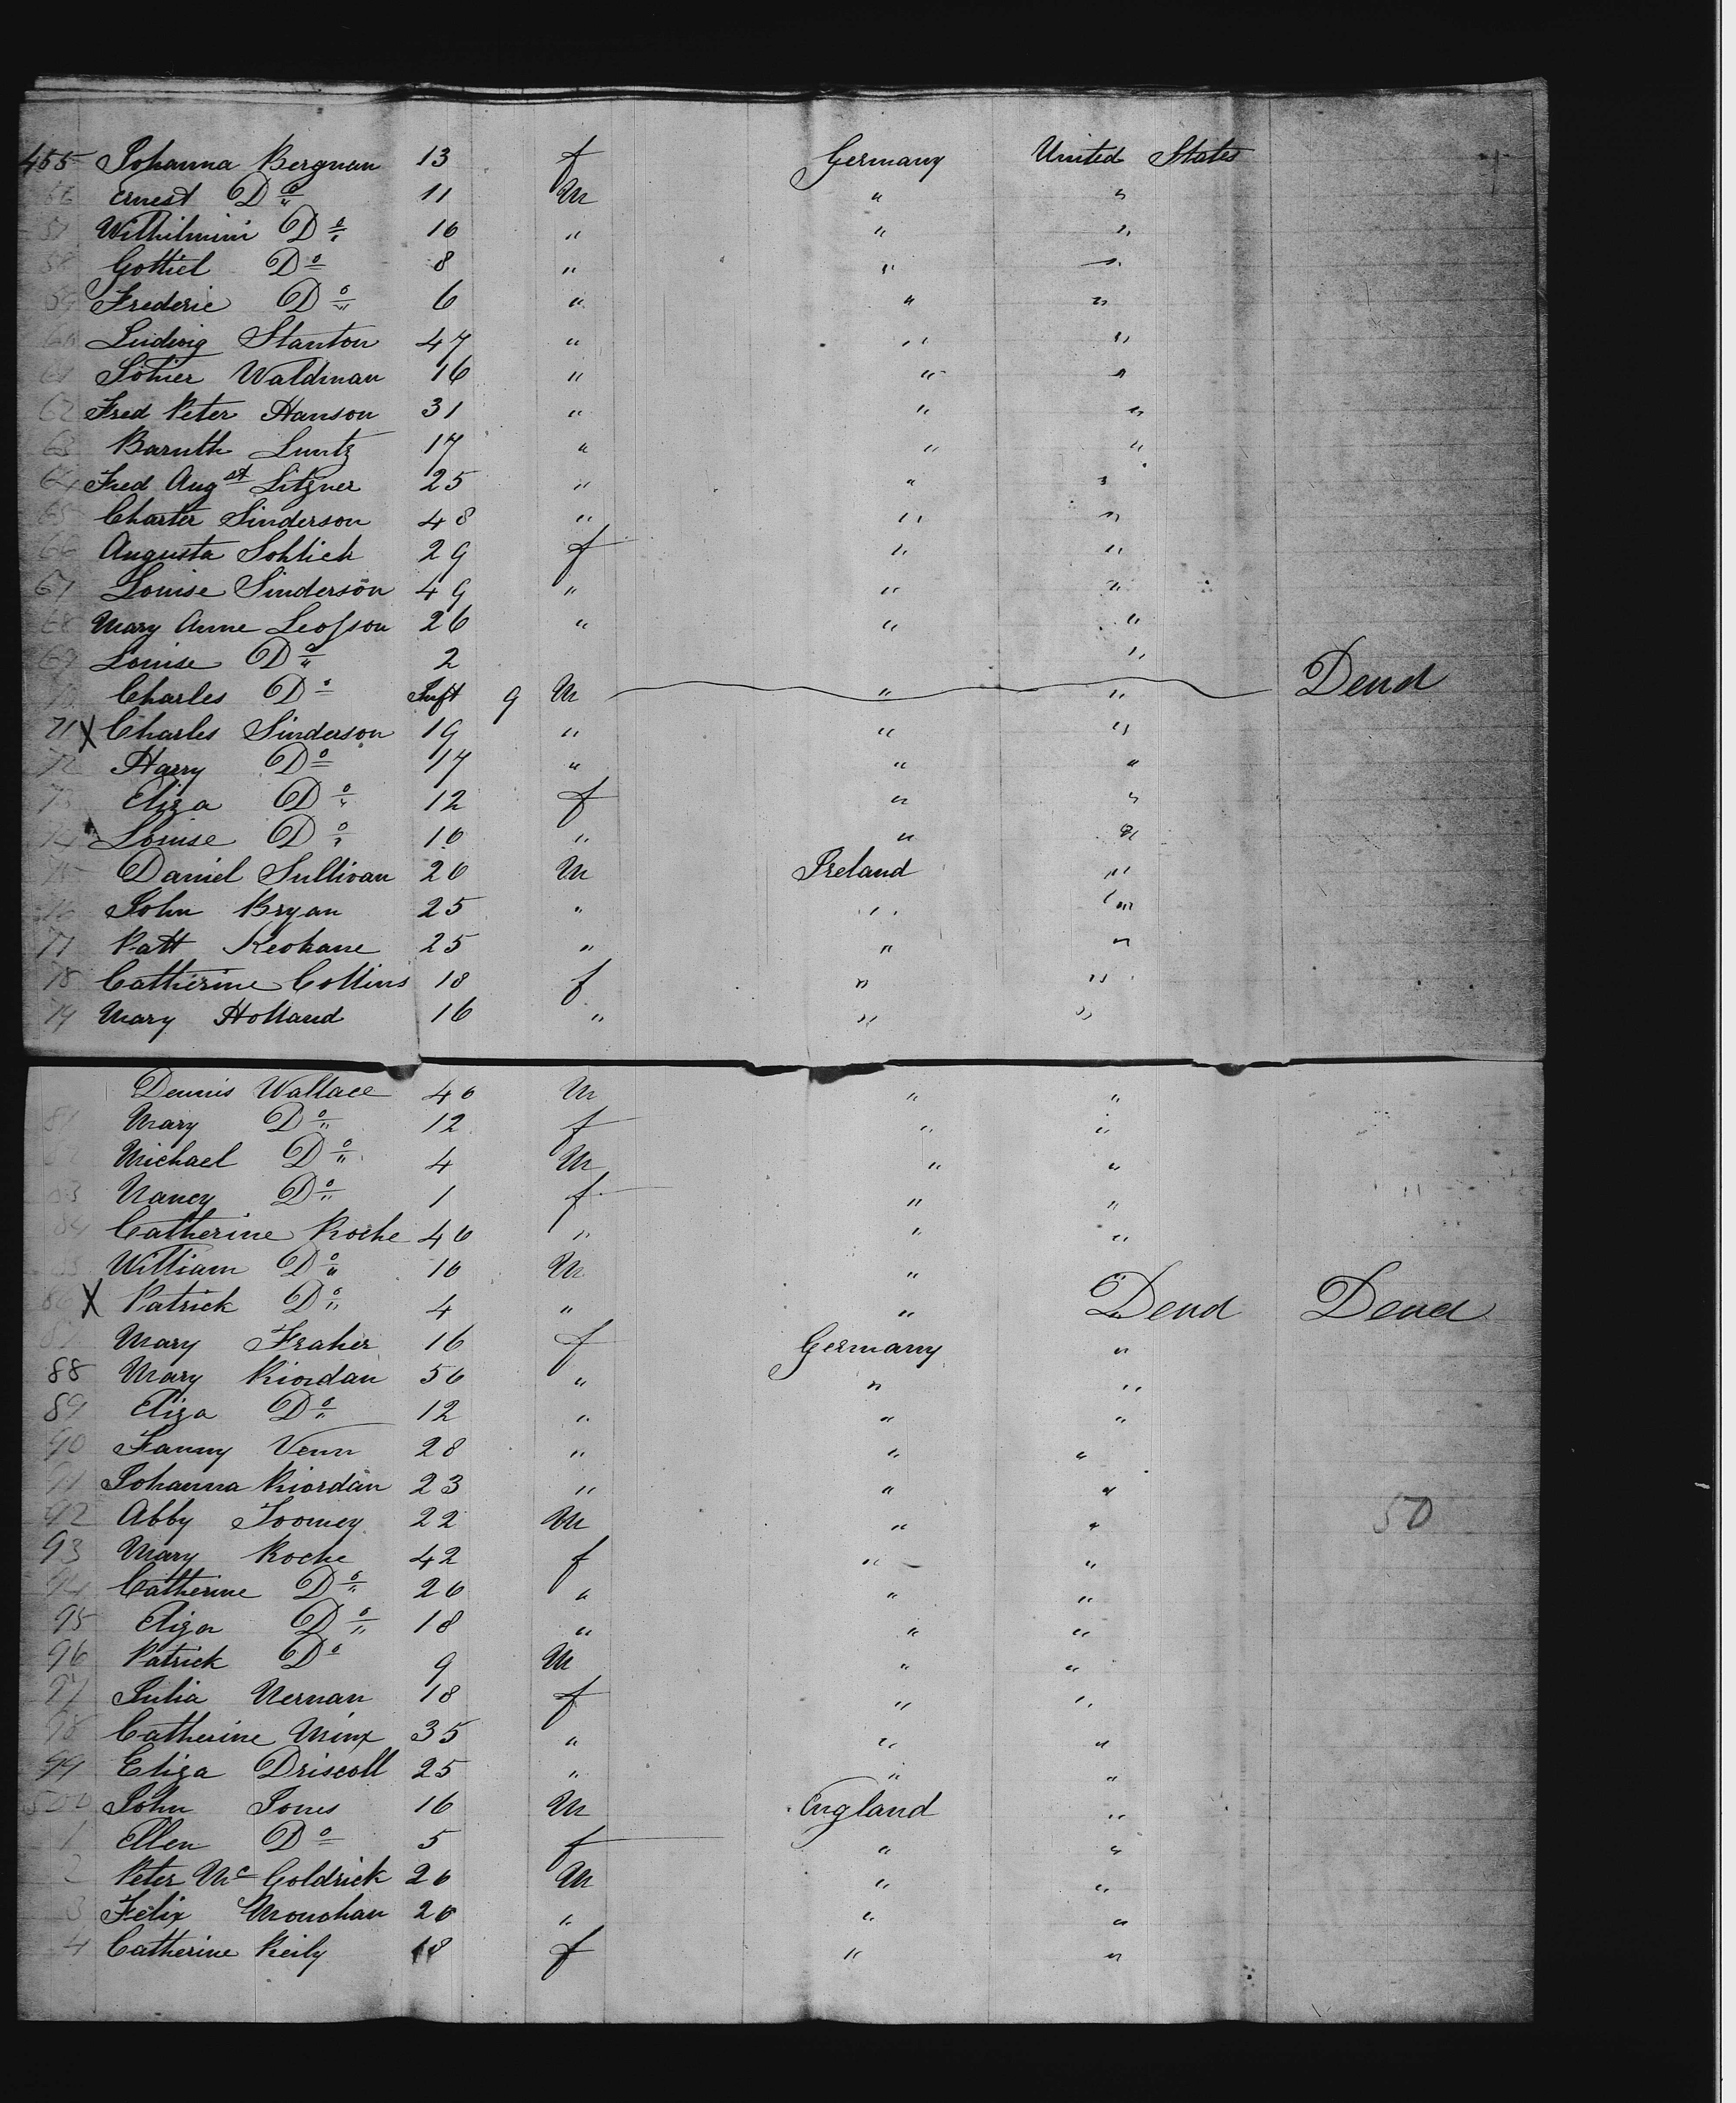 455 Johanna Bergman 13 f Germany United States
56 Ernest Do 11 M " "
57 Wilhilmini Do 10 " " "
58 Gottiel Do 8 " " "
59 Frederic Do 6 " " "
60 Ludwig Stanton 47 " " "
61 Sohier Waldman 16 " " "
62 Fred Peter Hanson 31 " " "
63 Baruth Luntz 17 " " "
64 Fred Augst Litzner 25 " " "
65 Charter Sinderson 48 " " "
66 Augusta Sohlich 29 f " "
67 Louise Sinderson 49 " " "
68 Mary Anne Leofson 26 " " "
69 Louise Do 2 "
70 Charles Do Inft 9 M " " Dead
71 X Charles Sinderson 19 " " "
72 Harry Do 17 " " "
73 Eliza Do 12 f " "
74 Louise Do 10 " " "
75 Daniel Sullivan 20 M Ireland "
76 John Bryan 25 " " "
77 Patt Keohane 25 " " "
78 Catherine Collins 18 f " "
79 Mary Holland 16 " " "
Dennis Wallace 40 M " "
81 Mary Do 12 f " "
82 Michael Do 4 M " "
83 Nancy Do 1 f " "
84 Catherine Roche 40 " " "
85 William Do 10 M " "
86 X Patrick Do 4 " " Dead Dead
87 Mary Fraher 16 f Germany "
88 Mary Riordan 50 " " "
89 Eliza Do 12 " " "
90 Fanny Venn 28 " " "
91 Johanna Riordan 23 " " "
92 Abby Toomey 22 M " " 50
93 Mary Roche 42 f " "
94 Catherine Do 20 " " "
95 Eliza Do 18 " " "
96 Patrick Do 9 M " "
97 Julia Nernan 18 f " "
98 Catherine Minx 35 " " "
99 Eliza Driscoll 25 " " "
500 John Jones 16 M England "
1 Ellen Do 5 f " "
2 Peter Mc Goldrick 20 M " "
3 Felix Monohan 20 " " "
4 Catherine Reily 18 f " "